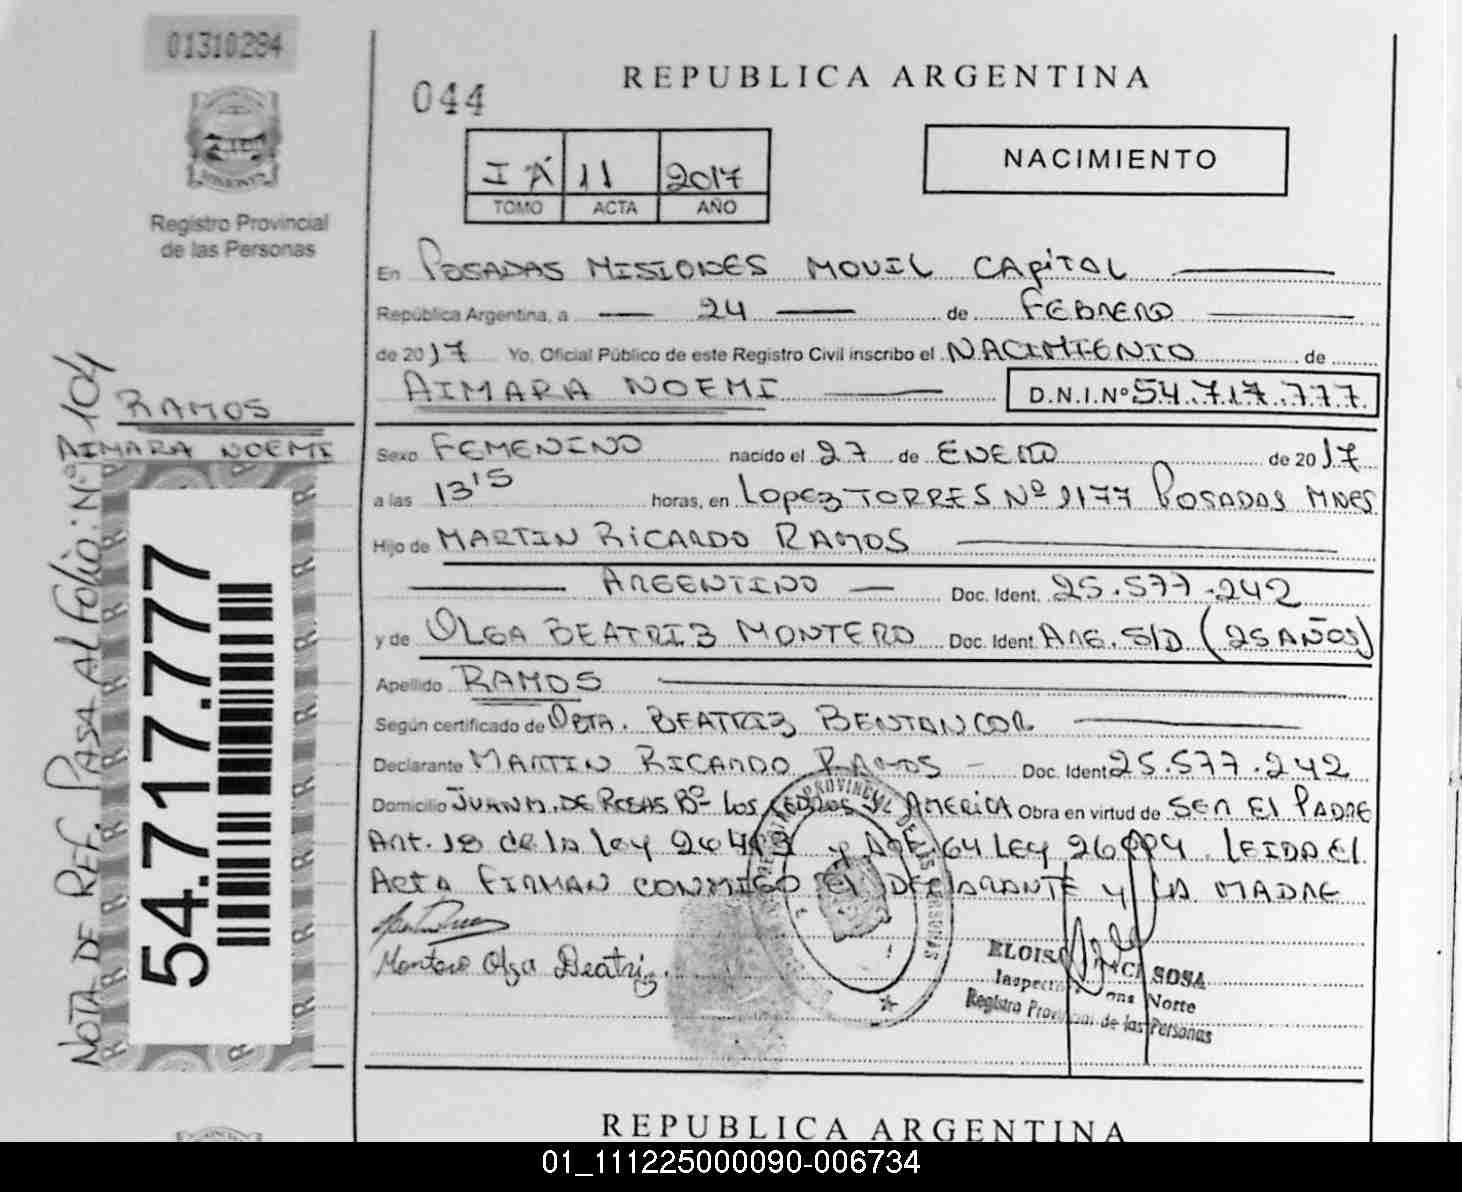 01310284
Registro Provincial
de las Personas
044
REPUBLICA ARGENTINA
I A 11 2017
TOMO ACTA AÑO
NACIMIENTO
En POSADAS MISIONES MOVIL CAPITAL
República Argentina, a 24 de FEBRERO
de 2017 Yo, Oficial Público de este Registro Civil inscribo el NACIMIENTO de
AIMARA NOEMI D.N.I.Nº 54.717.777
RAMOS
AIMARA NOEMI
Sexo FEMENINO nacido el 27 de ENERO de 2017
a las 13'5 horas, en LOPEZ TORRES Nº 1177 POSADAS MNES
Hijo de MARTIN RICARDO RAMOS
ARGENTINO Doc. Ident. 25.577.242
y de OLGA BEATRIZ MONTERO Doc. Ident. ARG. S/D (25 AÑOS)
Apellido RAMOS
Según certificado de OBTA. BEATRIZ BENTANCOR
Declarante MARTIN RICARDO RAMOS Doc. Ident 25.577.242
Domicilio JUAN M. DE ROSAS Bº LOS CEDROS Y AMERICA Obra en virtud de SER El PADRE
Art. 18 de la ley 26413 y ART 64 LEY 26994. LEIDA El
ActA FIRMAN CONMIGO El DECLARANTE y LA MADRE
Montero Olga Beatriz.
SOSA
Norte
Registro Provincial de las Personas
NOTA DE REF. PASA Al Folio: Nº 104
54.717.777
REPUBLICA ARGENTINA
01_111225000090-006734